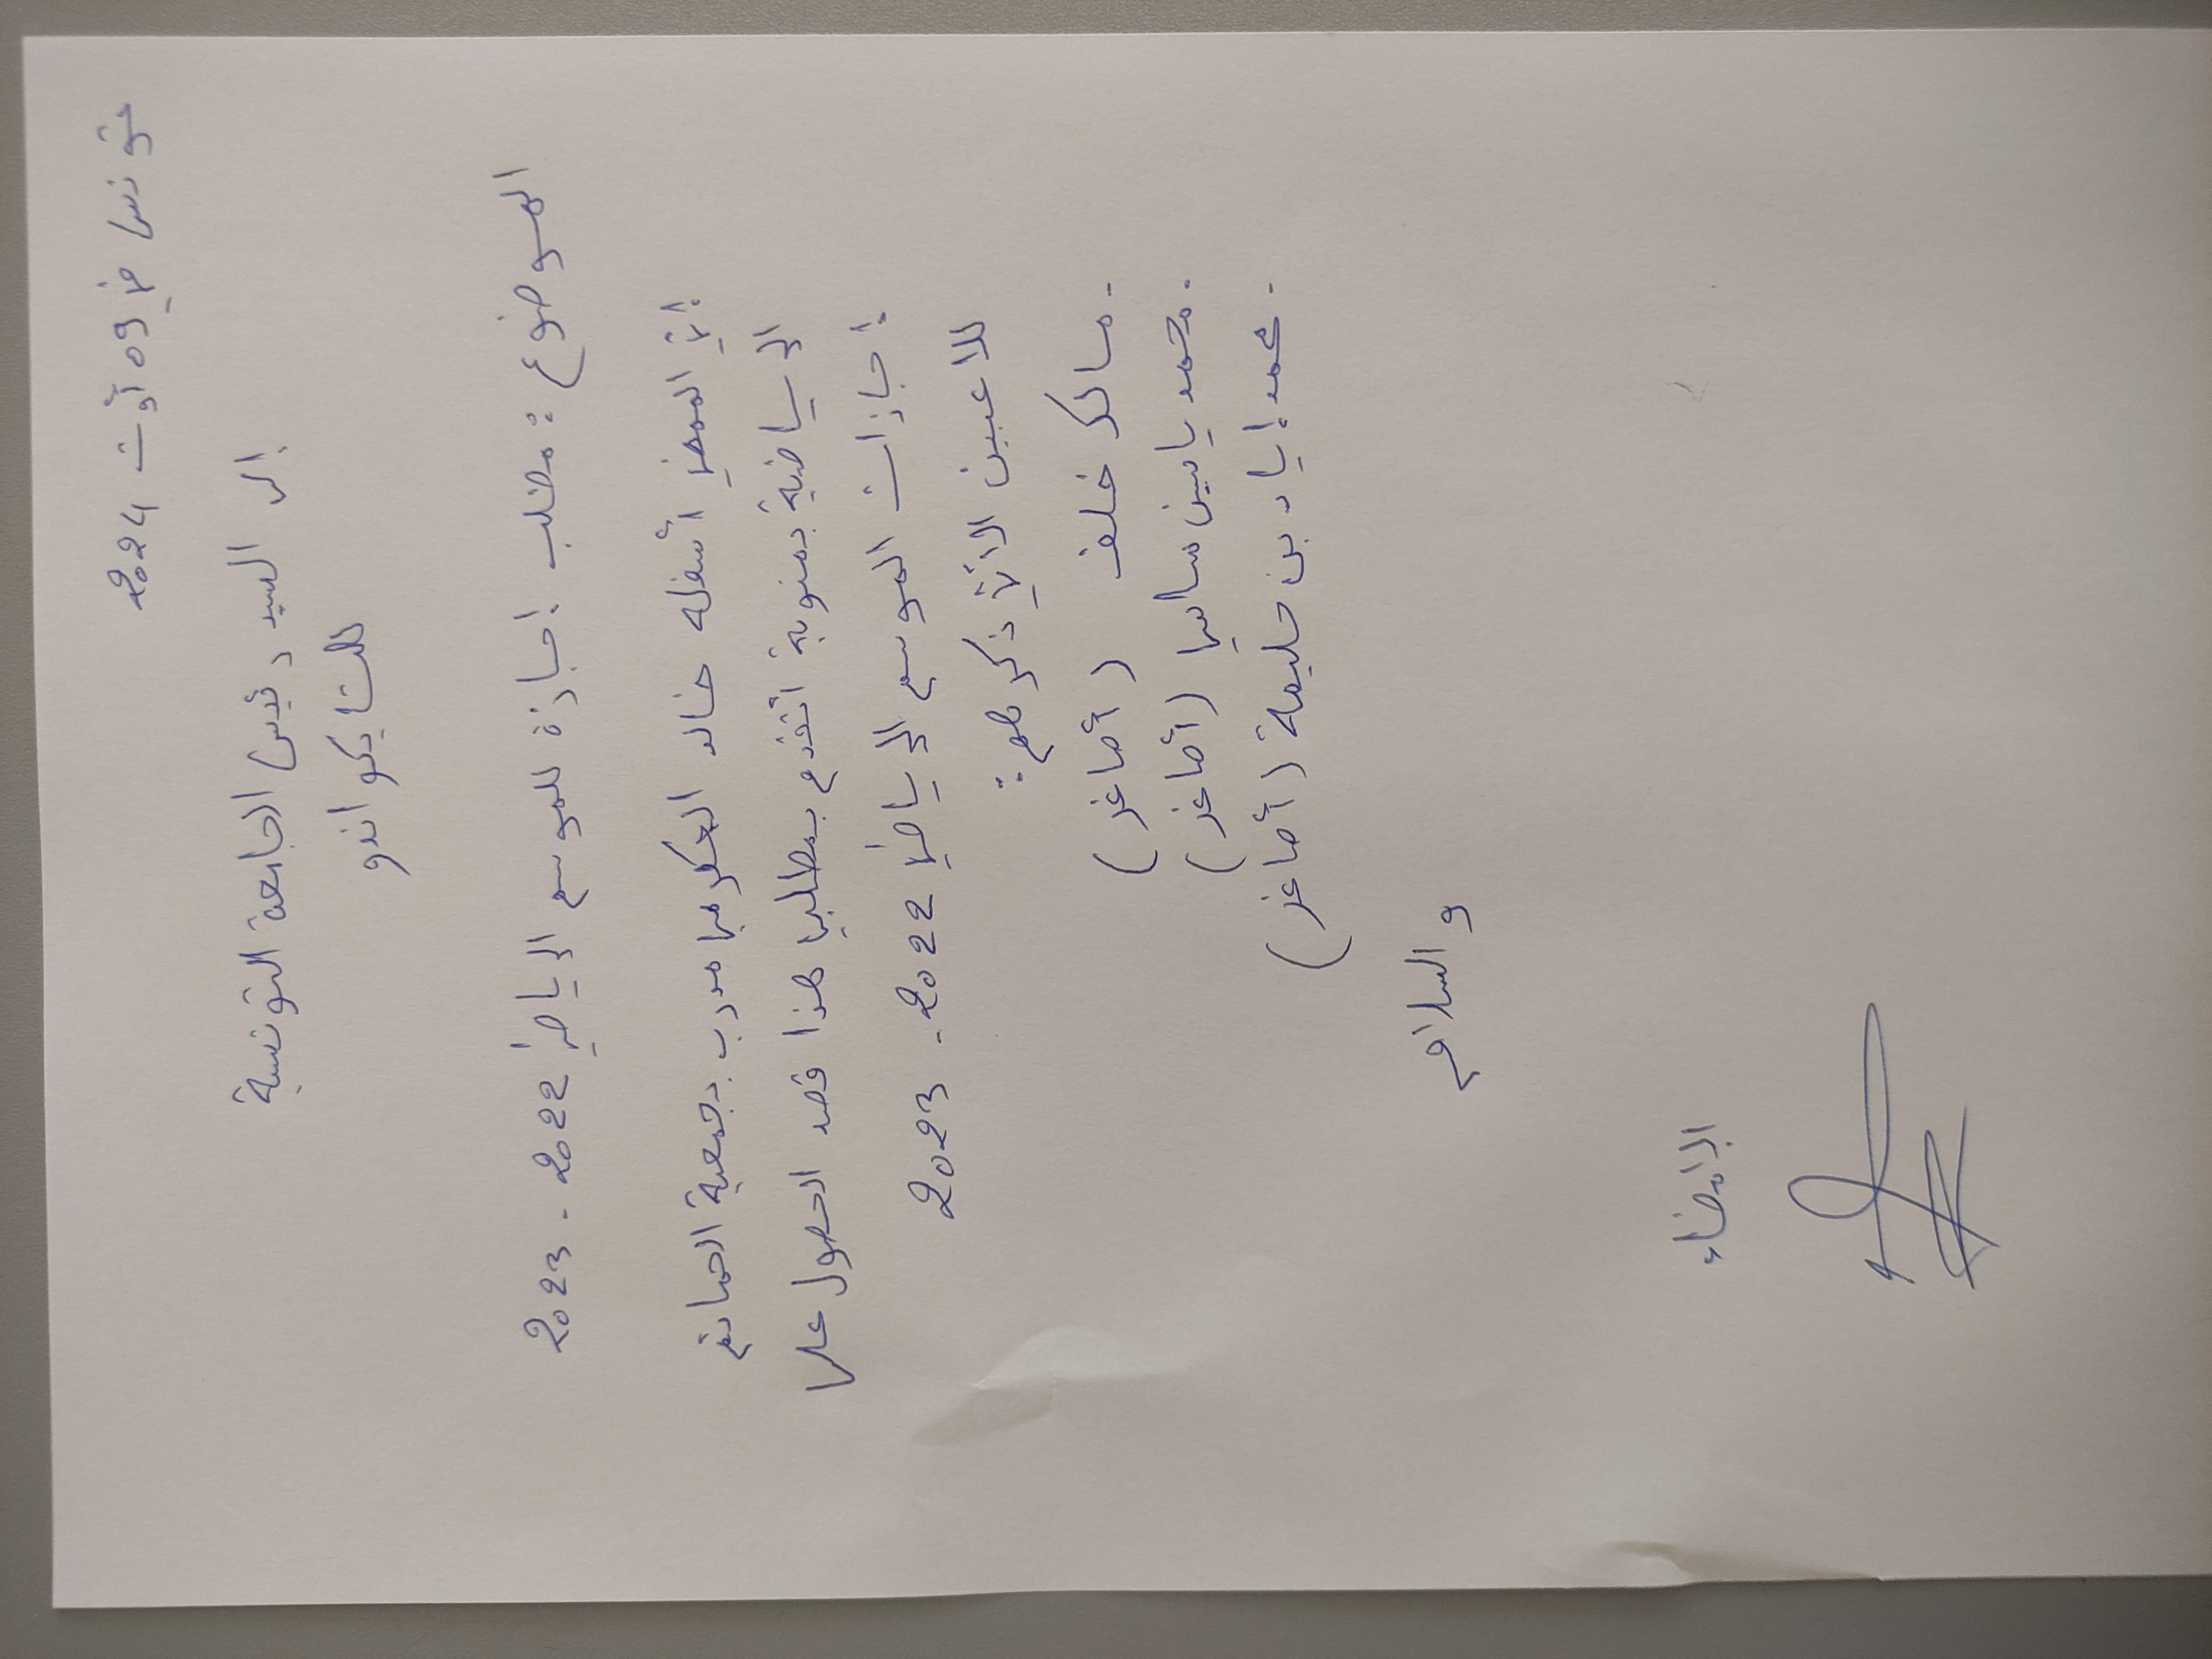 تونس في 09 أوت 2024
إلى السيد رئيس الجامعة التونسية
للتايكواندو
الموضوع : مطلب إجازة للموسم الرياضي 2022 - 2023
إني الممضي أسفله خالد العكرمي مدرب بجمعية الحمائم
الرياضية بمنوبة أتقدم بمطلبي هذا قصد الحصول على
إجازات الموسم الرياضي 2022 - 2023
للاعبين الآتي ذكرهم :
- مالك خلف (أصاغر)
- محمد ياسين سالمي (أصاغر)
- محمد إياد بن حليمة (أصاغر)
والسلام
الإمضاء